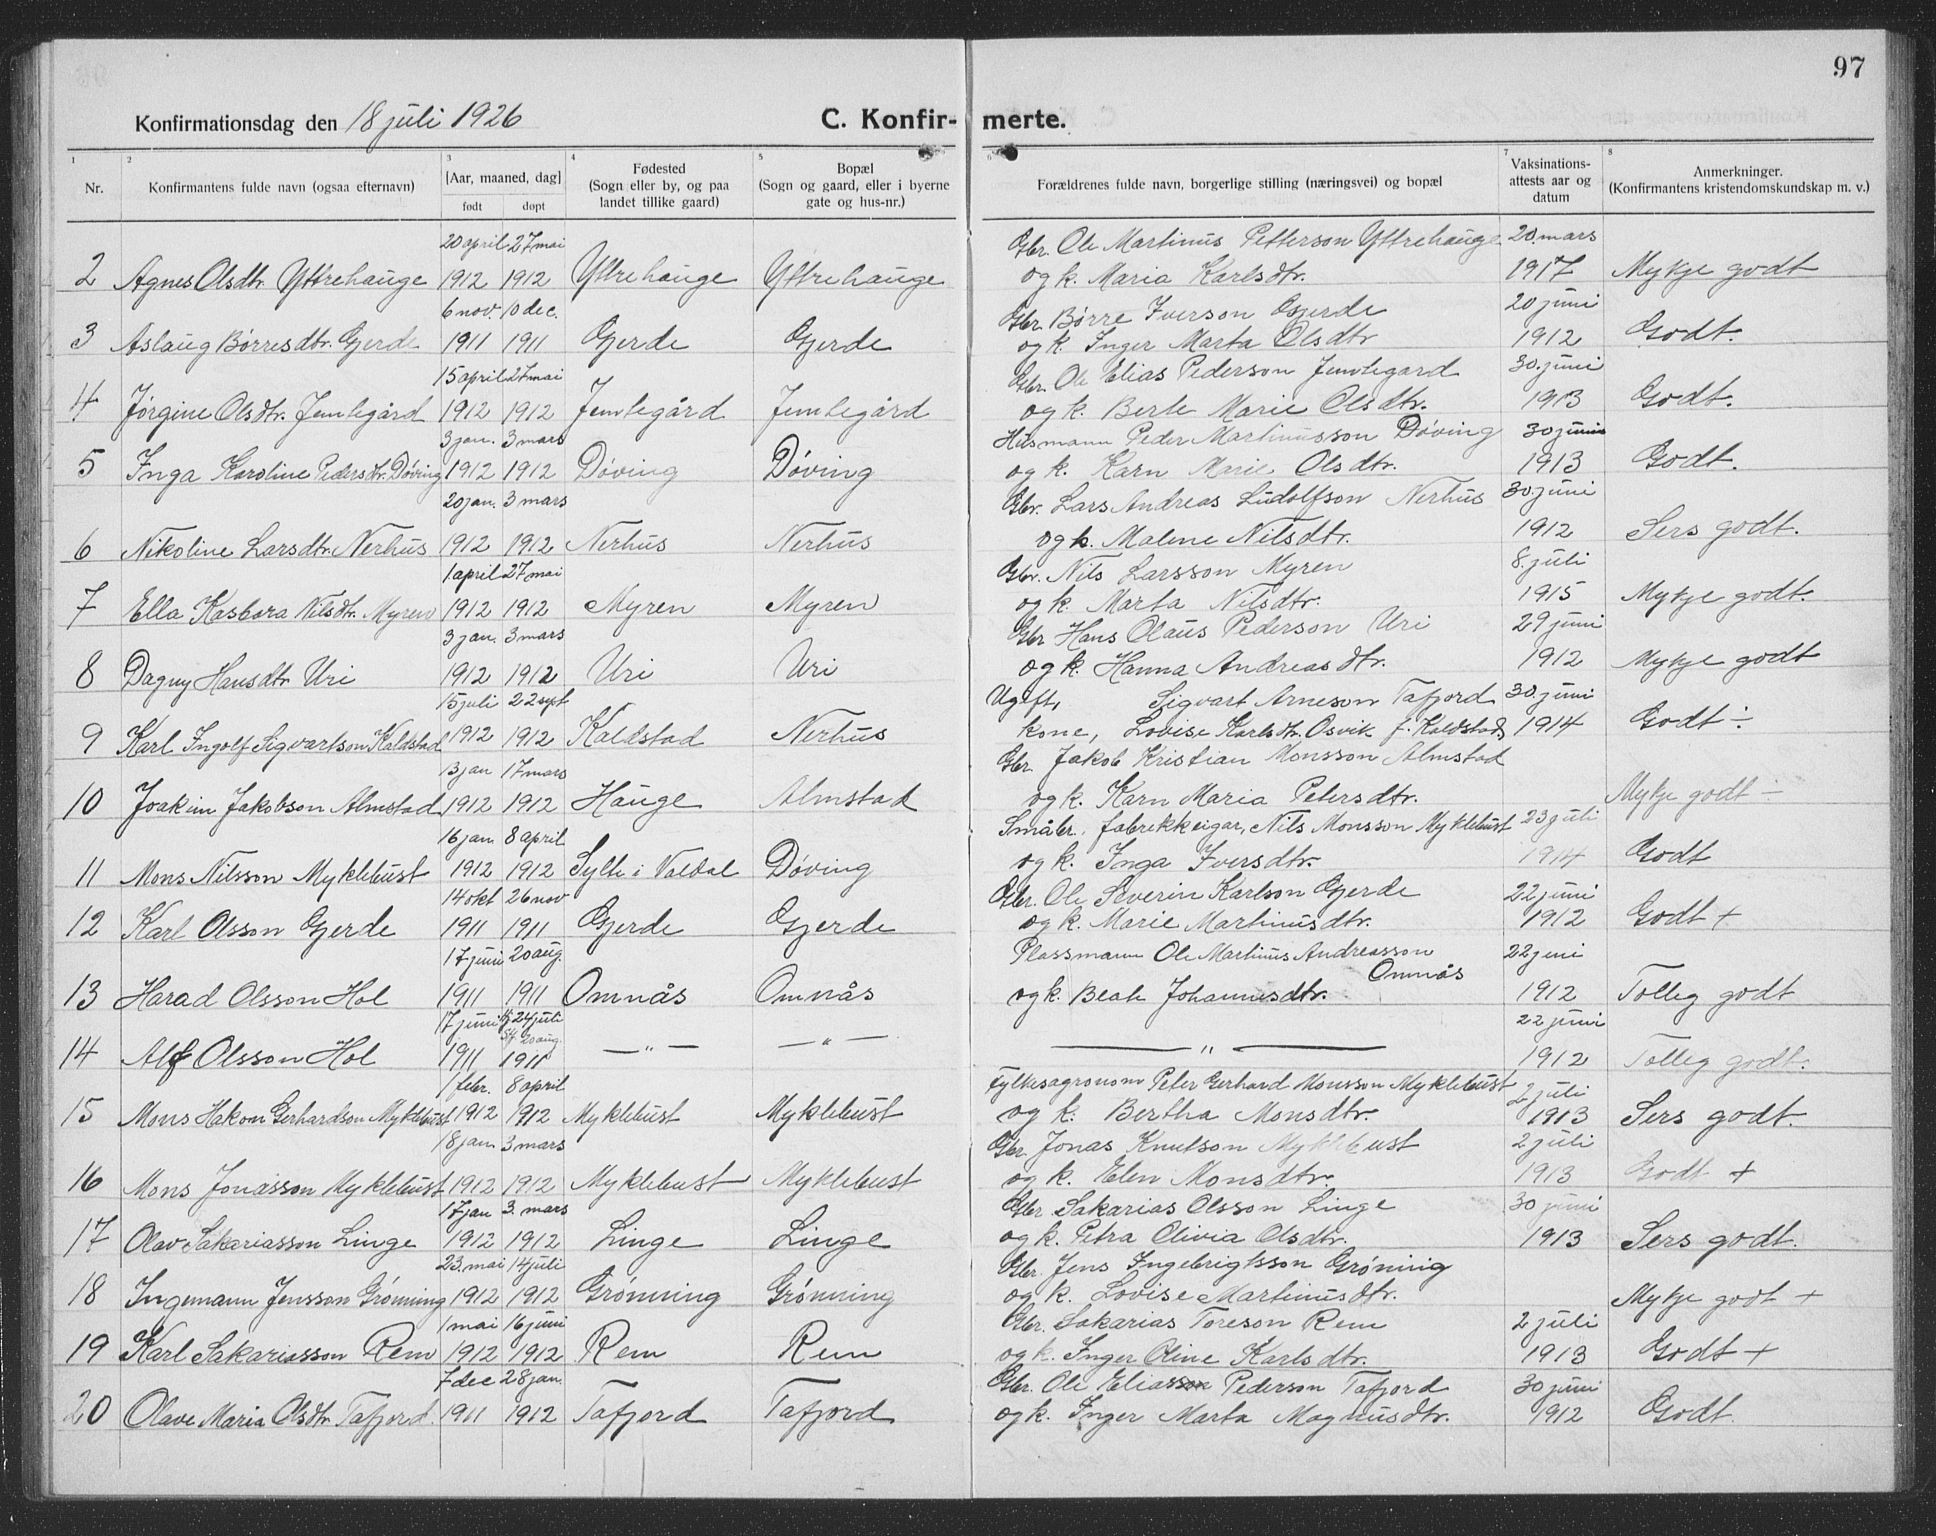 97
Konfirmationsdag den 18 juli 1926
C. Konfir- merte.
1 2 3 4 5 6 7 8
Nr.
Konfirmantens fulde navn (ogsaa efternavn)
[Aar, maaned, dag]
født døpt
Fødested
(Sogn eller by, og paa
landet tillike gaard)
Bopæl
(Sogn og gaard, eller i byerne
gate og hus-nr.)
Forældrenes fulde navn, borgerlige stilling (næringsvei) og bopæl
Vaksinations-
attests aar og
datum
Anmerkninger.
(Konfirmantens kristendomskundskap m. v.)
20 april 27 mai Gbr. Ole Martinus Petterson Yttrehauge 20. mars
2 Agnes Olsdtr. Yttrehauge 1912 1912 Yttrehauge Yttrehauge og k. Maria Karlsdtr. 1917 Mykje godt
6 nov. 10 dec. Gbr. Børre Iverson Gjerde 20 juni
3 Aslaug Børresdtr. Gjerde 1911 1911 Gjerde Gjerde og k. Inger Marta Olsdtr 1912 Godt.
15 april 27 mai Gbr. Ole Elias Pederson Jemtegard 30. juni
4 Jørgine Olsdtr. Jemtegård 1912 1912 Jemtegård Jemtegård og k. Berte Marie Olsdtr. 1913 Godt.
3 jan. 3 mars Husmann Peder Martinusson Døving 30 juni
5 Inga Karoline Pedersdtr. Døving 1912 1912 Døving Døving og k. Karn Marie Olsdtr. 1913 Godt.
20 jan. 3 mars Gbr. Lars Andreas Ludolfson Nerhus 30. juni
6 Nikoline Larsdtr. Nerhus 1912 1912 Nerhus Nerhus og k. Malene Nilsdtr. 1912 Sers godt.
1 april 27 mai Gbr. Nils Larsson Myren 8. juli
7 Ella Kasbara Nilsdtr. Myren 1912 1912 Myren Myren og k. Marta Nilsdtr. 1915 Mykje godt.
3 jan. 3 mars Gbr Hans Olaus Pederson Uri 29 juni
8 Dagny Hansdtr Uri 1912 1912 Uri Uri og k. Hanna Andreasdtr. 1912 Mykje godt
15 juli 22 sept Ugift, Sigvart Arneson Tafjord 30. juni
9 Karl Ingolf Sigvartson Kaldstad 1912 1912 Kaldstad Nerhus kone, Lovise Karlsdtr. Osvik f. Kaldstad 1914 Godt ÷
13 jan 17 mars Gbr. Jakob Kristian Monsson Almstad
10 Joakim Jakobson Almstad 1912 1912 Hauge Almstad og k. Karn Maria Petersdtr. Mykje godt —
16 jan 8 april Småbr. fabrikkeigar, Nils Monsson Myklebust 23 juli
11 Mons Nilsson Myklebust 1912 1912 Sylte i Valdal Døving og k. Inga Iversdtr. 1914 Godt
14 okt 26 nov Gbr. Ole Severin Karlson Gjerde 22 juni
12 Karl Olsson Gjerde 1911 1911 Gjerde Gjerde og k. Marie Martinusdtr. 1912 Godt +
17 juni 20 aug. Plassmann Ole Martinus Andreasson 22 juni
Omnås
13 Harad Olsson Hol 1911 1911 Omnås Omnås og k. Beate Johannesdtr. 1912 Tolleg godt
17 juni 24 juli 20 aug. 22 juni
14 Alf Olsson Hol 1911 1911 — " — — " — — " — 1912 Tolleg godt.
1 febr. 8 april Fylkesagronom Peter Gerhard Monsson Myklebust 2 juli
15 Mons Hakon Gerhardson Myklebust 1912 1912 Myklebust Myklebust og k. Bertha Monsdtr. 1913 Sers godt.
18 jan. 3 mars Gbr. Jonas Knutson Myklebust 2 juli
16 Mons Jonasson Myklebust 1912 1912 Myklebust Myklebust og k. Elen Monsdtr. 1913 Godt +
17 jan 3. mars Gbr Sakarias Olsson Linge 30 juni
17 Olav Sakariasson Linge 1912 1912 Linge Linge og k. Petra Olivia Olsdtr. 1913 Sers godt.
23. mai 14 juli Gbr. Jens Ingebrigtsson Grønning
18 Ingemann Jensson Grønning 1912 1912 Grønning Grønning og k. Lovise Martinusdtr. Mykje godt +
1 mai 16 juni Gbr. Sakarias Toreson Rem 2 juli
19 Karl Sakariasson Rem 1912 1912 Rem Rem og k. Inger Oline Karlsdtr. 1913 Godt +
7 dec 28 jan. Gbr. Ole Eliasson Pederson Tafjord 30 juni
20 Olave Maria Olsdtr Tafjord. 1911 1912 Tafjord Tafjord og k. Inger Marta Magnusdtr. 1912 Godt